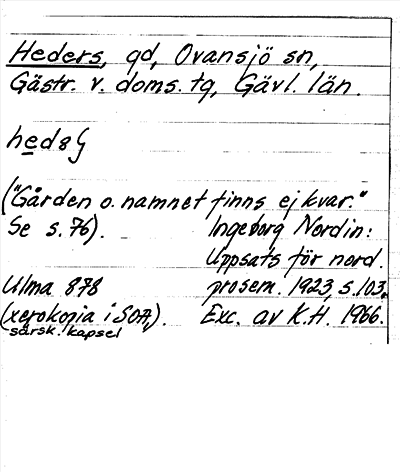 Heders, gd, Ovansjö sn,
Gästr. v. doms. tg, Gävl. län.
("Gården o. namnet finns ej kvar."
Se s. 76). Ingeborg Nordin:
Uppsats för nord.
Ulma 878 prosem. 1923, s. 103.
(xerokopia i SOA,). Exc. av K.H. 1966.
särsk. kapsel